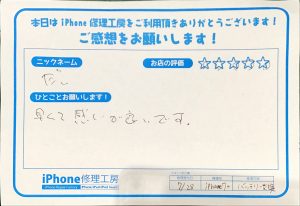 本日は iPhone 修理工房をご利用頂きありがとうございます!
ご感想をお願いします!
ニックネーム
お店の評価
☆☆☆☆☆
だい
ひとことお願いします!
早くて 感じが良いです。
iPhone修理工房
7/28
iPhone7
バッテリー交換